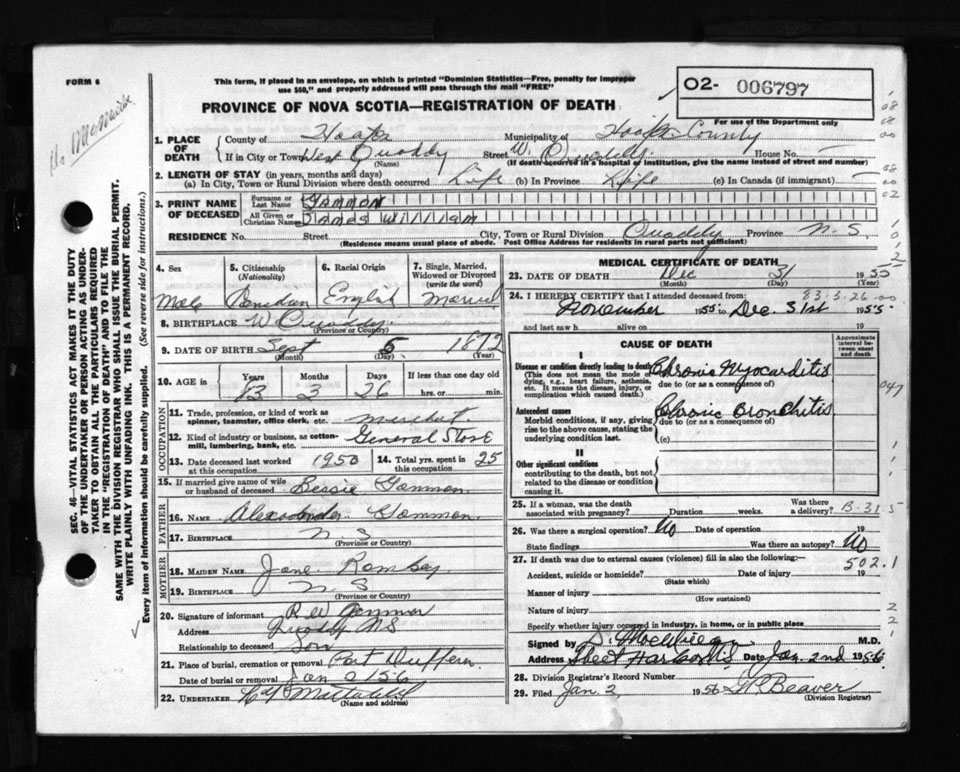 FORM 6
This form, if placed in an envelope, on which is printed "Dominion Statistics—Free, penalty for improper
use $50," and properly addressed will pass through the mail "FREE"
O2- 006797
For use of the Department only
PROVINCE OF NOVA SCOTIA—REGISTRATION OF DEATH
1. PLACE OF DEATH
County of Halifax Municipality of Halifax County
If in City or Town West Quoddy (Name) Street W. Quoddy House No. —
(If death occurred in a hospital or institution, give the name instead of street and number)
2. LENGTH OF STAY (in years, months and days)
(a) In City, Town or Rural Division where death occurred Life (b) In Province Life (c) In Canada (if immigrant) —
3. PRINT NAME OF DECEASED
Surname or Last Name GAMMON
All Given or Christian Names James William
RESIDENCE No. Street City, Town or Rural Division Quoddy Province N.S.
(Residence means usual place of abode. Post Office Address for residents in rural parts not sufficient)
4. Sex Male
5. Citizenship (Nationality) Canadian
6. Racial Origin English
7. Single, Married, Widowed or Divorced (write the word) Married
8. BIRTHPLACE W. Quoddy (Province or Country)
9. DATE OF BIRTH Sept (Month) 5 (Day) 1872 (Year)
10. AGE in Years 83 Months 3 Days 26 If less than one day old hrs. or min.
OCCUPATION
11. Trade, profession, or kind of work as spinner, teamster, office clerk, etc. merchant
12. Kind of industry or business, as cotton-mill, lumbering, bank, etc. General Store
13. Date deceased last worked at this occupation 1950
14. Total yrs. spent in this occupation 25
15. If married give name of wife or husband of deceased Bessie Gammon
FATHER
16. NAME Alexander Gammon
17. BIRTHPLACE N S (Province or Country)
MOTHER
18. MAIDEN NAME Jane Romkey
19. BIRTHPLACE N S (Province or Country)
20. Signature of informant R W Gammon
Address Quoddy NS
Relationship to deceased Son
21. Place of burial, cremation or removal Port Dufferin
Date of burial or removal Jan 2 1956
22. UNDERTAKER
(Name and address)
MEDICAL CERTIFICATE OF DEATH
23. DATE OF DEATH Dec (Month) 31 (Day) 1955 (Year)
83-3-26 00
24. I HEREBY CERTIFY that I attended deceased from:
November 1955 to Dec. 31st 1955
and last saw h alive on 19
CAUSE OF DEATH
Approximate interval between onset and death
I
Disease or condition directly leading to death
(This does not mean the mode of dying, e.g., heart failure, asthenia, etc. It means the disease, injury, or complication which caused death.)
Chronic Myocarditis
due to (or as a consequence of)
Antecedent causes
Morbid conditions, if any, giving rise to the above cause, stating the underlying condition last.
Chronic Bronchitis
due to (or as a consequence of)
(c)
II
Other significant conditions
contributing to the death, but not related to the disease or condition causing it.
25. If a woman, was the death associated with pregnancy? Duration weeks. Was there a delivery? B-31
26. Was there a surgical operation? No Date of operation 19
State findings Was there an autopsy? No
27. If death was due to external causes (violence) fill in also the following:— 502.1
Accident, suicide or homicide? (State which) Date of injury 19
Manner of injury (How sustained)
Nature of injury
Specify whether injury occurred in industry, in home, or in public place
Signed by M.D.
Address Sheet Harbour NS Date Jan. 2nd 1956
28. Division Registrar's Record Number
29. Filed Jan. 2 1956 Beaver (Division Registrar)
SEC. 46—VITAL STATISTICS ACT MAKES IT THE DUTY
OF THE UNDERTAKER OR PERSON ACTING AS UNDER-
TAKER TO OBTAIN ALL THE PARTICULARS REQUIRED
IN THE "REGISTRATION OF DEATH" AND TO FILE THE
SAME WITH THE DIVISION REGISTRAR WHO SHALL ISSUE THE BURIAL PERMIT.
WRITE PLAINLY WITH UNFADING INK. THIS IS A PERMANENT RECORD.
Every item of information should be carefully supplied. (See reverse side for instructions.)